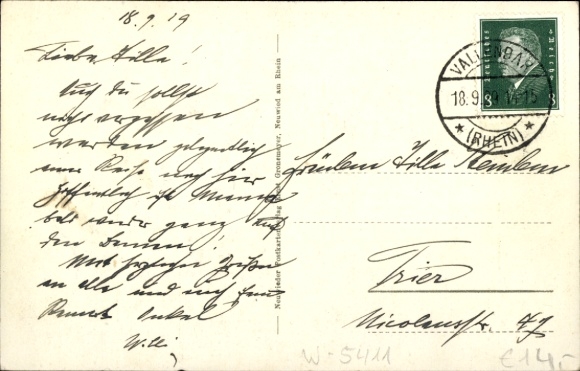 18.9.29
Liebe Hilla!
Auch du sollst
nicht vergessen
werden gelegentlich
einer Reise nach hier
Hoffentlich ist Mama
bald wieder ganz auf
den Beinen!
Mit herzlichen Grüßen
an alle und auch
Onkel
Willi
Neuwieder Postkartenverlag Gronemeyer, Neuwied am Rhein
Deutsches Reich
8 8
VALLENDAR
18.9.29 14-15
★ (RHEIN) ★
Fräulein Hilla
Trier
Nicolausstr. 49
W-5411
€14,-